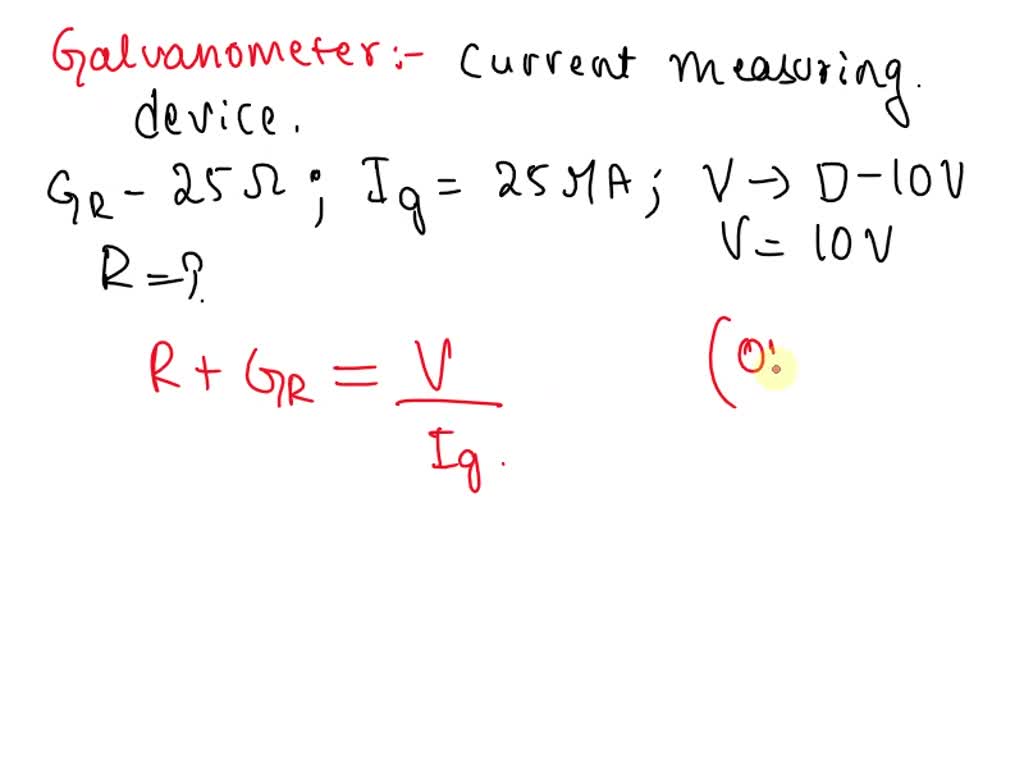 Galvanometer:- Current measuring.
device.
GR - 25 Ω ; Ig = 25 MA ; V → D-10V
R = ? V = 10V
R + GR = V / Ig.
(0